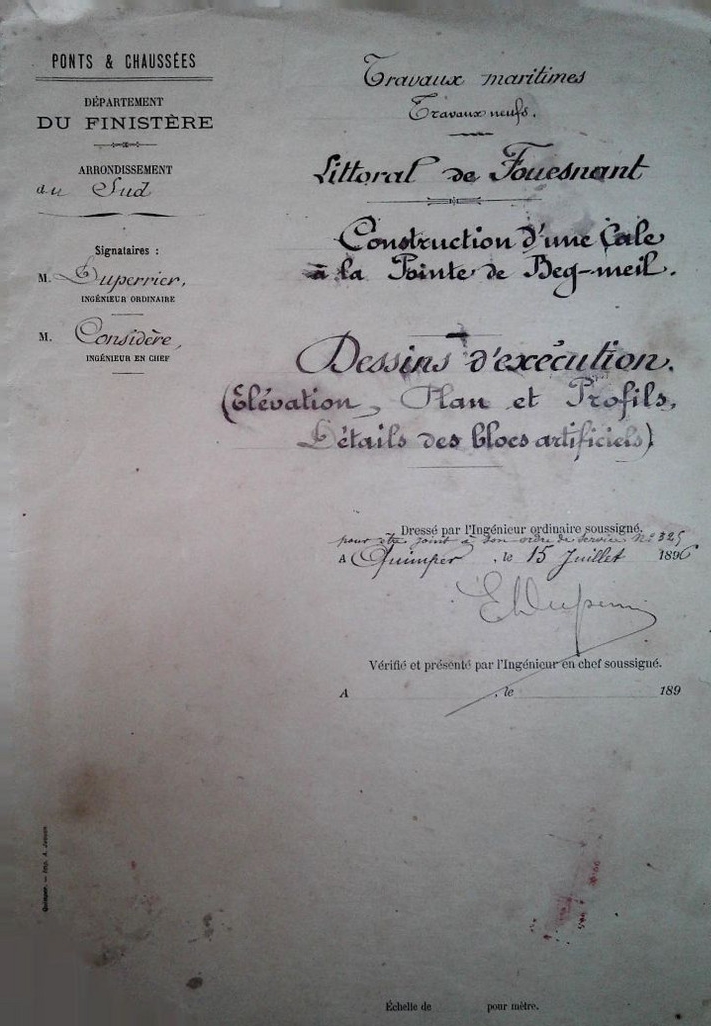 PONTS & CHAUSSÉES
DÉPARTEMENT
DU FINISTÈRE
ARRONDISSEMENT
du Sud
Signataires :
M. Duperrier,
INGÉNIEUR ORDINAIRE
M. Considère,
INGÉNIEUR EN CHEF
Travaux maritimes
Travaux neufs.
Littoral de Fouesnant
Construction d'une Cale
à la Pointe de Beg-meil.
Dessins d'exécution.
(Elévation, Plan et Profils,
Détails des blocs artificiels)
Dressé par l'Ingénieur ordinaire soussigné,
pour être joint à son ordre de service No 325
A Quimper, le 15 Juillet 1896
EDuperrier
Vérifié et présenté par l'Ingénieur en chef soussigné.
A , le 189
Quimper. — Imp. A. Jaouen
Échelle de pour mètre.